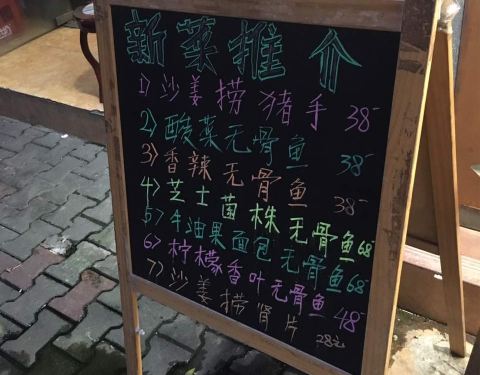 新菜推介
1) 沙姜捞猪手 38-
2) 酸菜无骨鱼 38-
3) 香辣无骨鱼 38-
4) 芝士菌株无骨鱼 68-
5) 牛油果面包无骨鱼 68-
6) 柠檬香叶无骨鱼 48-
7) 沙姜捞肾片 28元